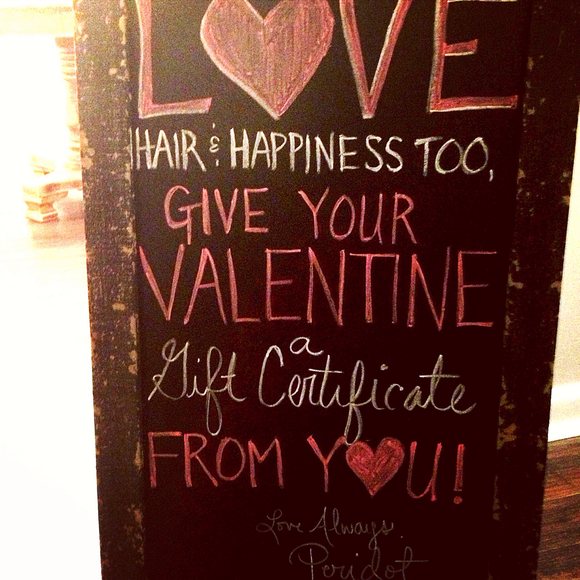 L♥VE
HAIR & HAPPINESS TOO,
GIVE YOUR
VALENTINE
a
Gift Certificate
FROM Y♥U!
Love Always,
Peridot